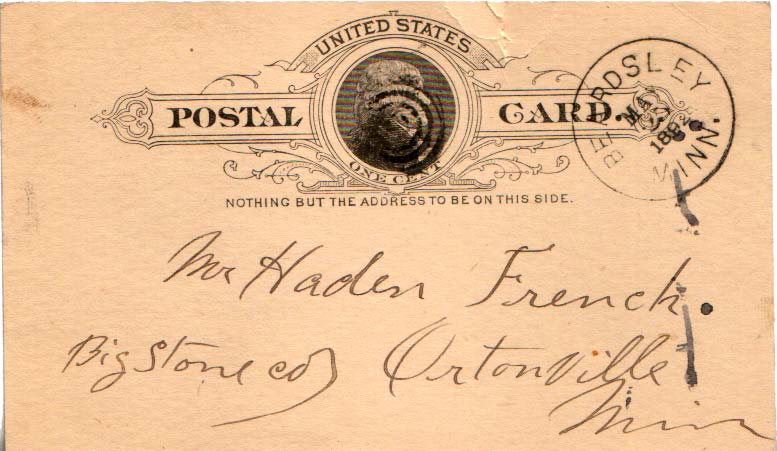 UNITED STATES
POSTAL CARD.
ONE CENT
NOTHING BUT THE ADDRESS TO BE ON THIS SIDE.
BEARDSLEY
MAY
MINN.
Mr Haden French.
Big Stone co Ortonville
Minn